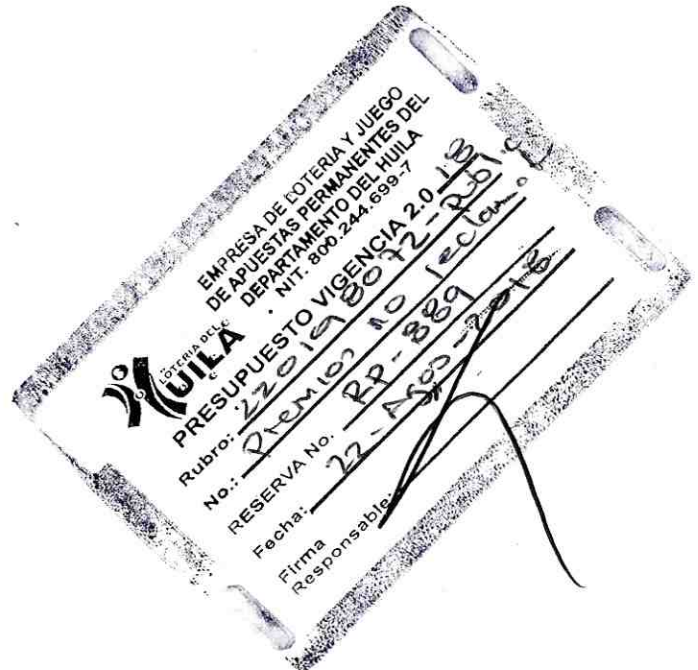 EMPRESA DE LOTERIA Y JUEGO
DE APUESTAS PERMANENTES DEL
DEPARTAMENTO DEL HUILA
NIT. 800.244.699-7
LOTERIA DEL
HUILA
PRESUPUESTO VIGENCIA 2.0 18
Rubro: 220198072-Publ
No.: Premios no reclam.
RESERVA No. RP-889
Fecha: 22-Agos-2018
Firma
Responsable: